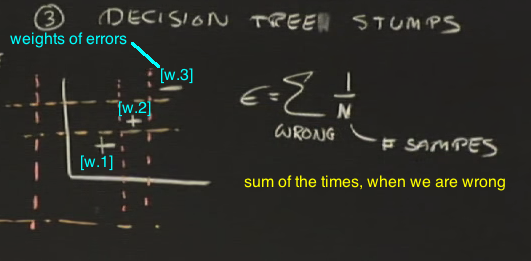 ③ DECISION TREE STUMPS
weights of errors
[w.3]
[w.2]
[w.1]
+
+
−
ε = Σ 1/N
WRONG
# SAMPES
sum of the times, when we are wrong